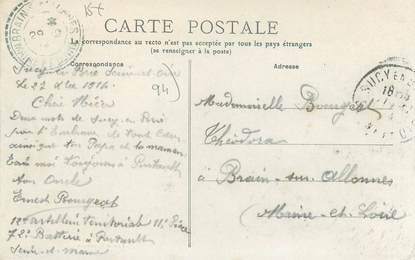 15f
CARTE POSTALE
La correspondance au recto n'est pas acceptée par tous les pays étrangers
(se renseigner à la poste)
Correspondance
Adresse
94)
Sucy en Brie Seine-et-Oise
le 27 1914
Chère Nièce
Deux mots de Sucy-en-Brie
pour t'embrasser de tout cœur
ainsi que ton Papa et ta maman
Ecris moi toujours à Pontault
Ton Oncle
Ernest Bourgeot
12e artillerie territoriale 11e Pièce
72e Batterie à Pontault
Seine-et-marne
Mademoiselle Bourgeot
Théodora
à Brain-sur-Allonnes
(Maine-et-Loire
SUCY EN